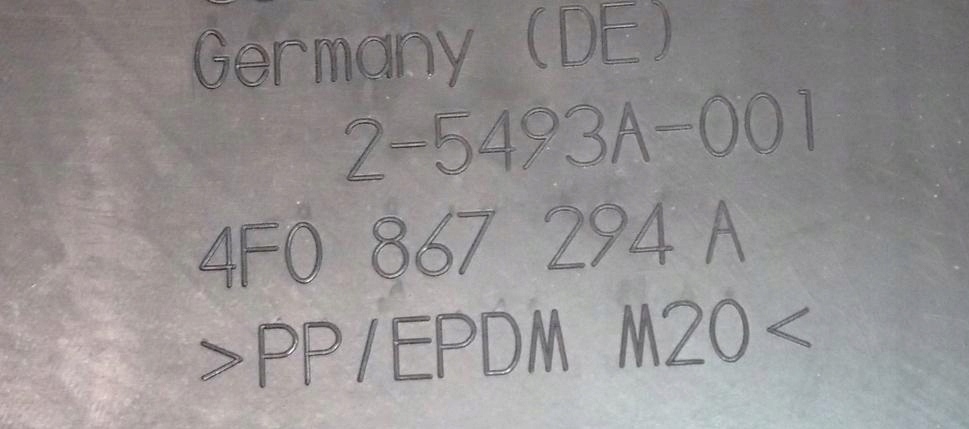 Germany (DE)
2-5493A-001
4F0 867 294 A
>PP/EPDM M20<